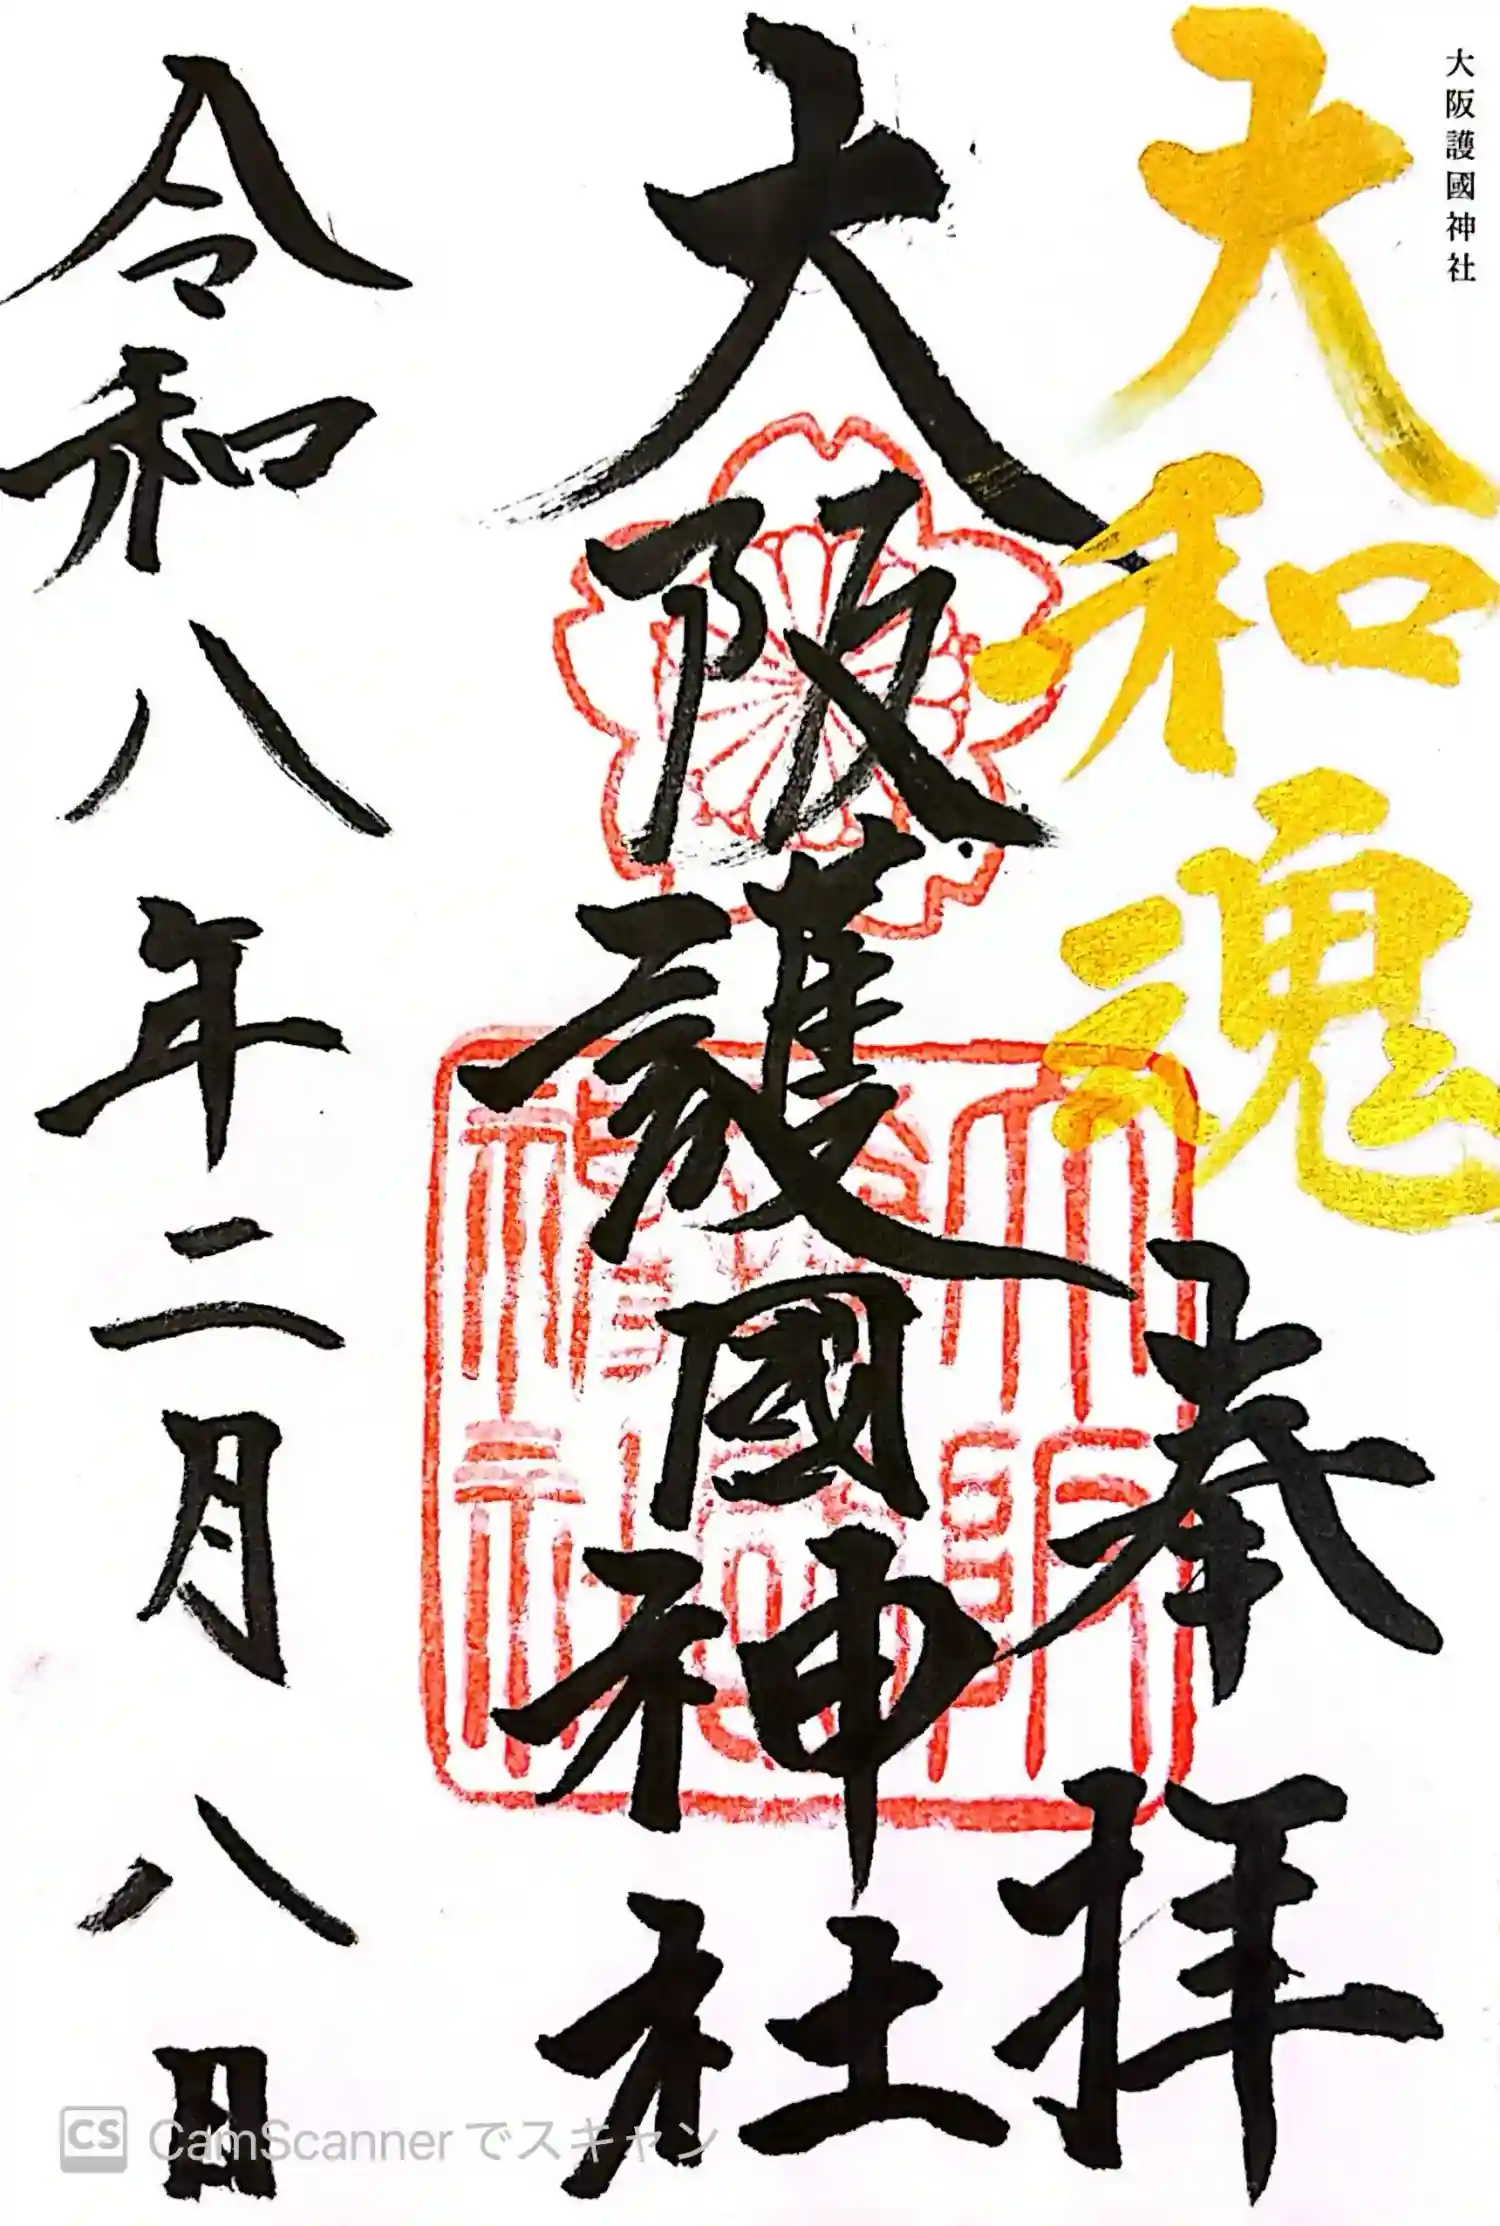 大阪護國神社
大和魂
奉拝
大阪護國神社
令和八年二月八日
CS CamScannerでスキャン